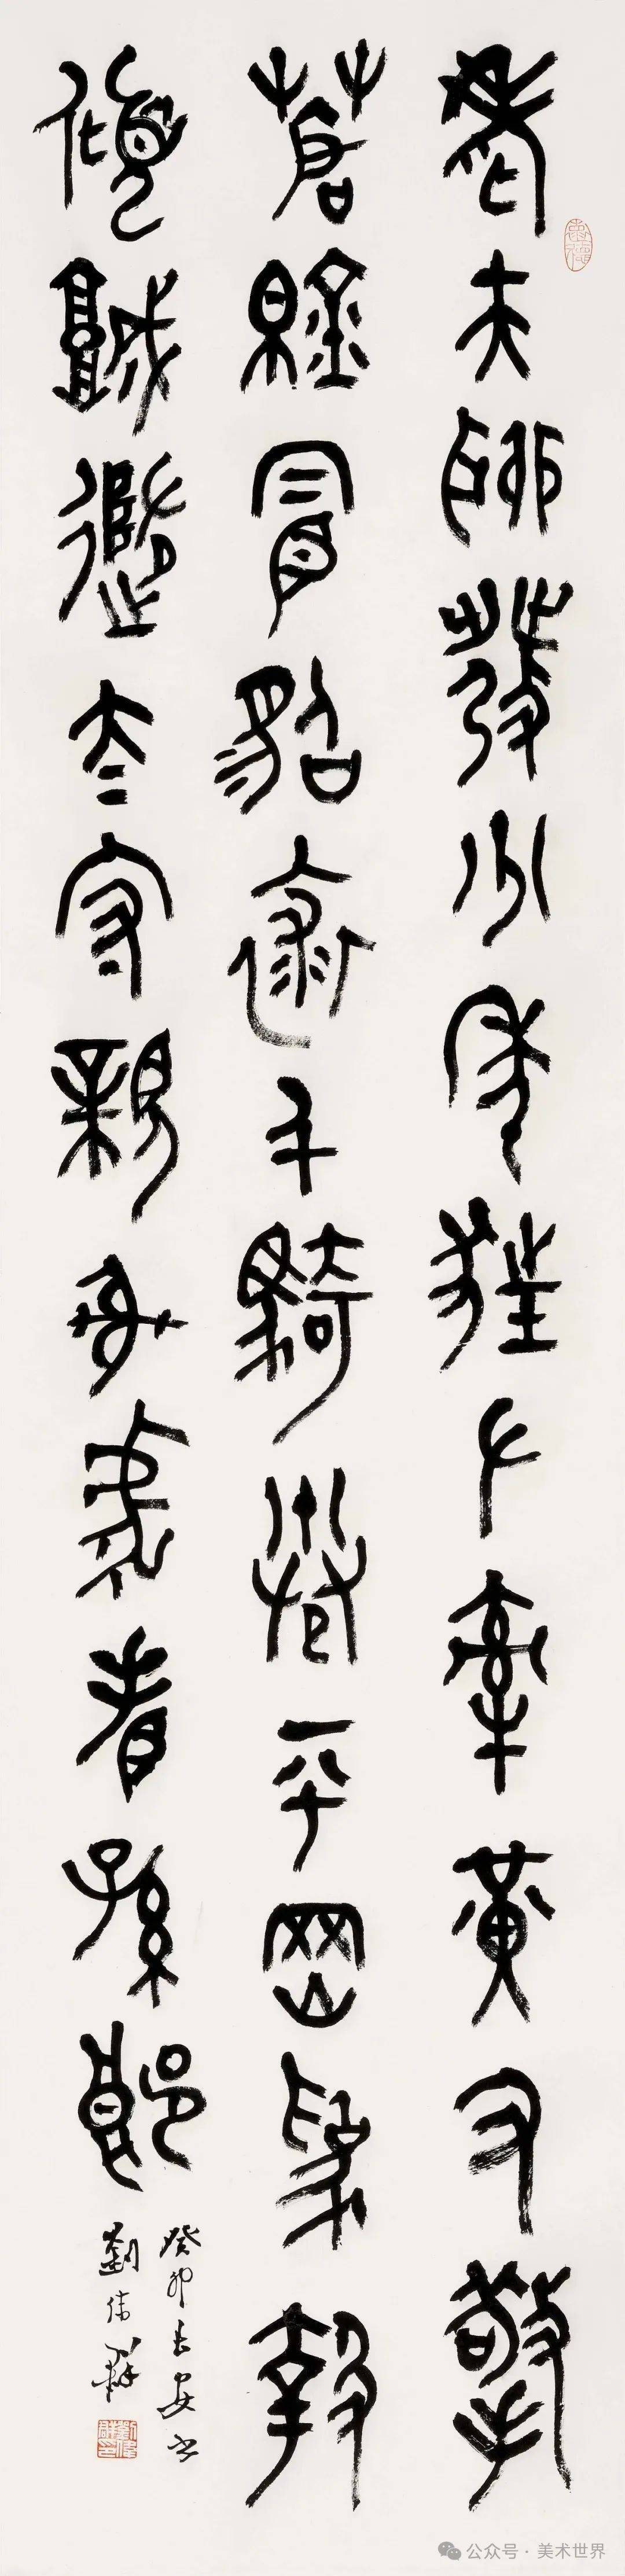 老夫聊發少年狂左牽黃右擎
蒼錦帽貂裘千騎卷平岡為報
傾城隨太守親射虎看孫郎
癸卯長安書
劉偉群
公众号·美术世界